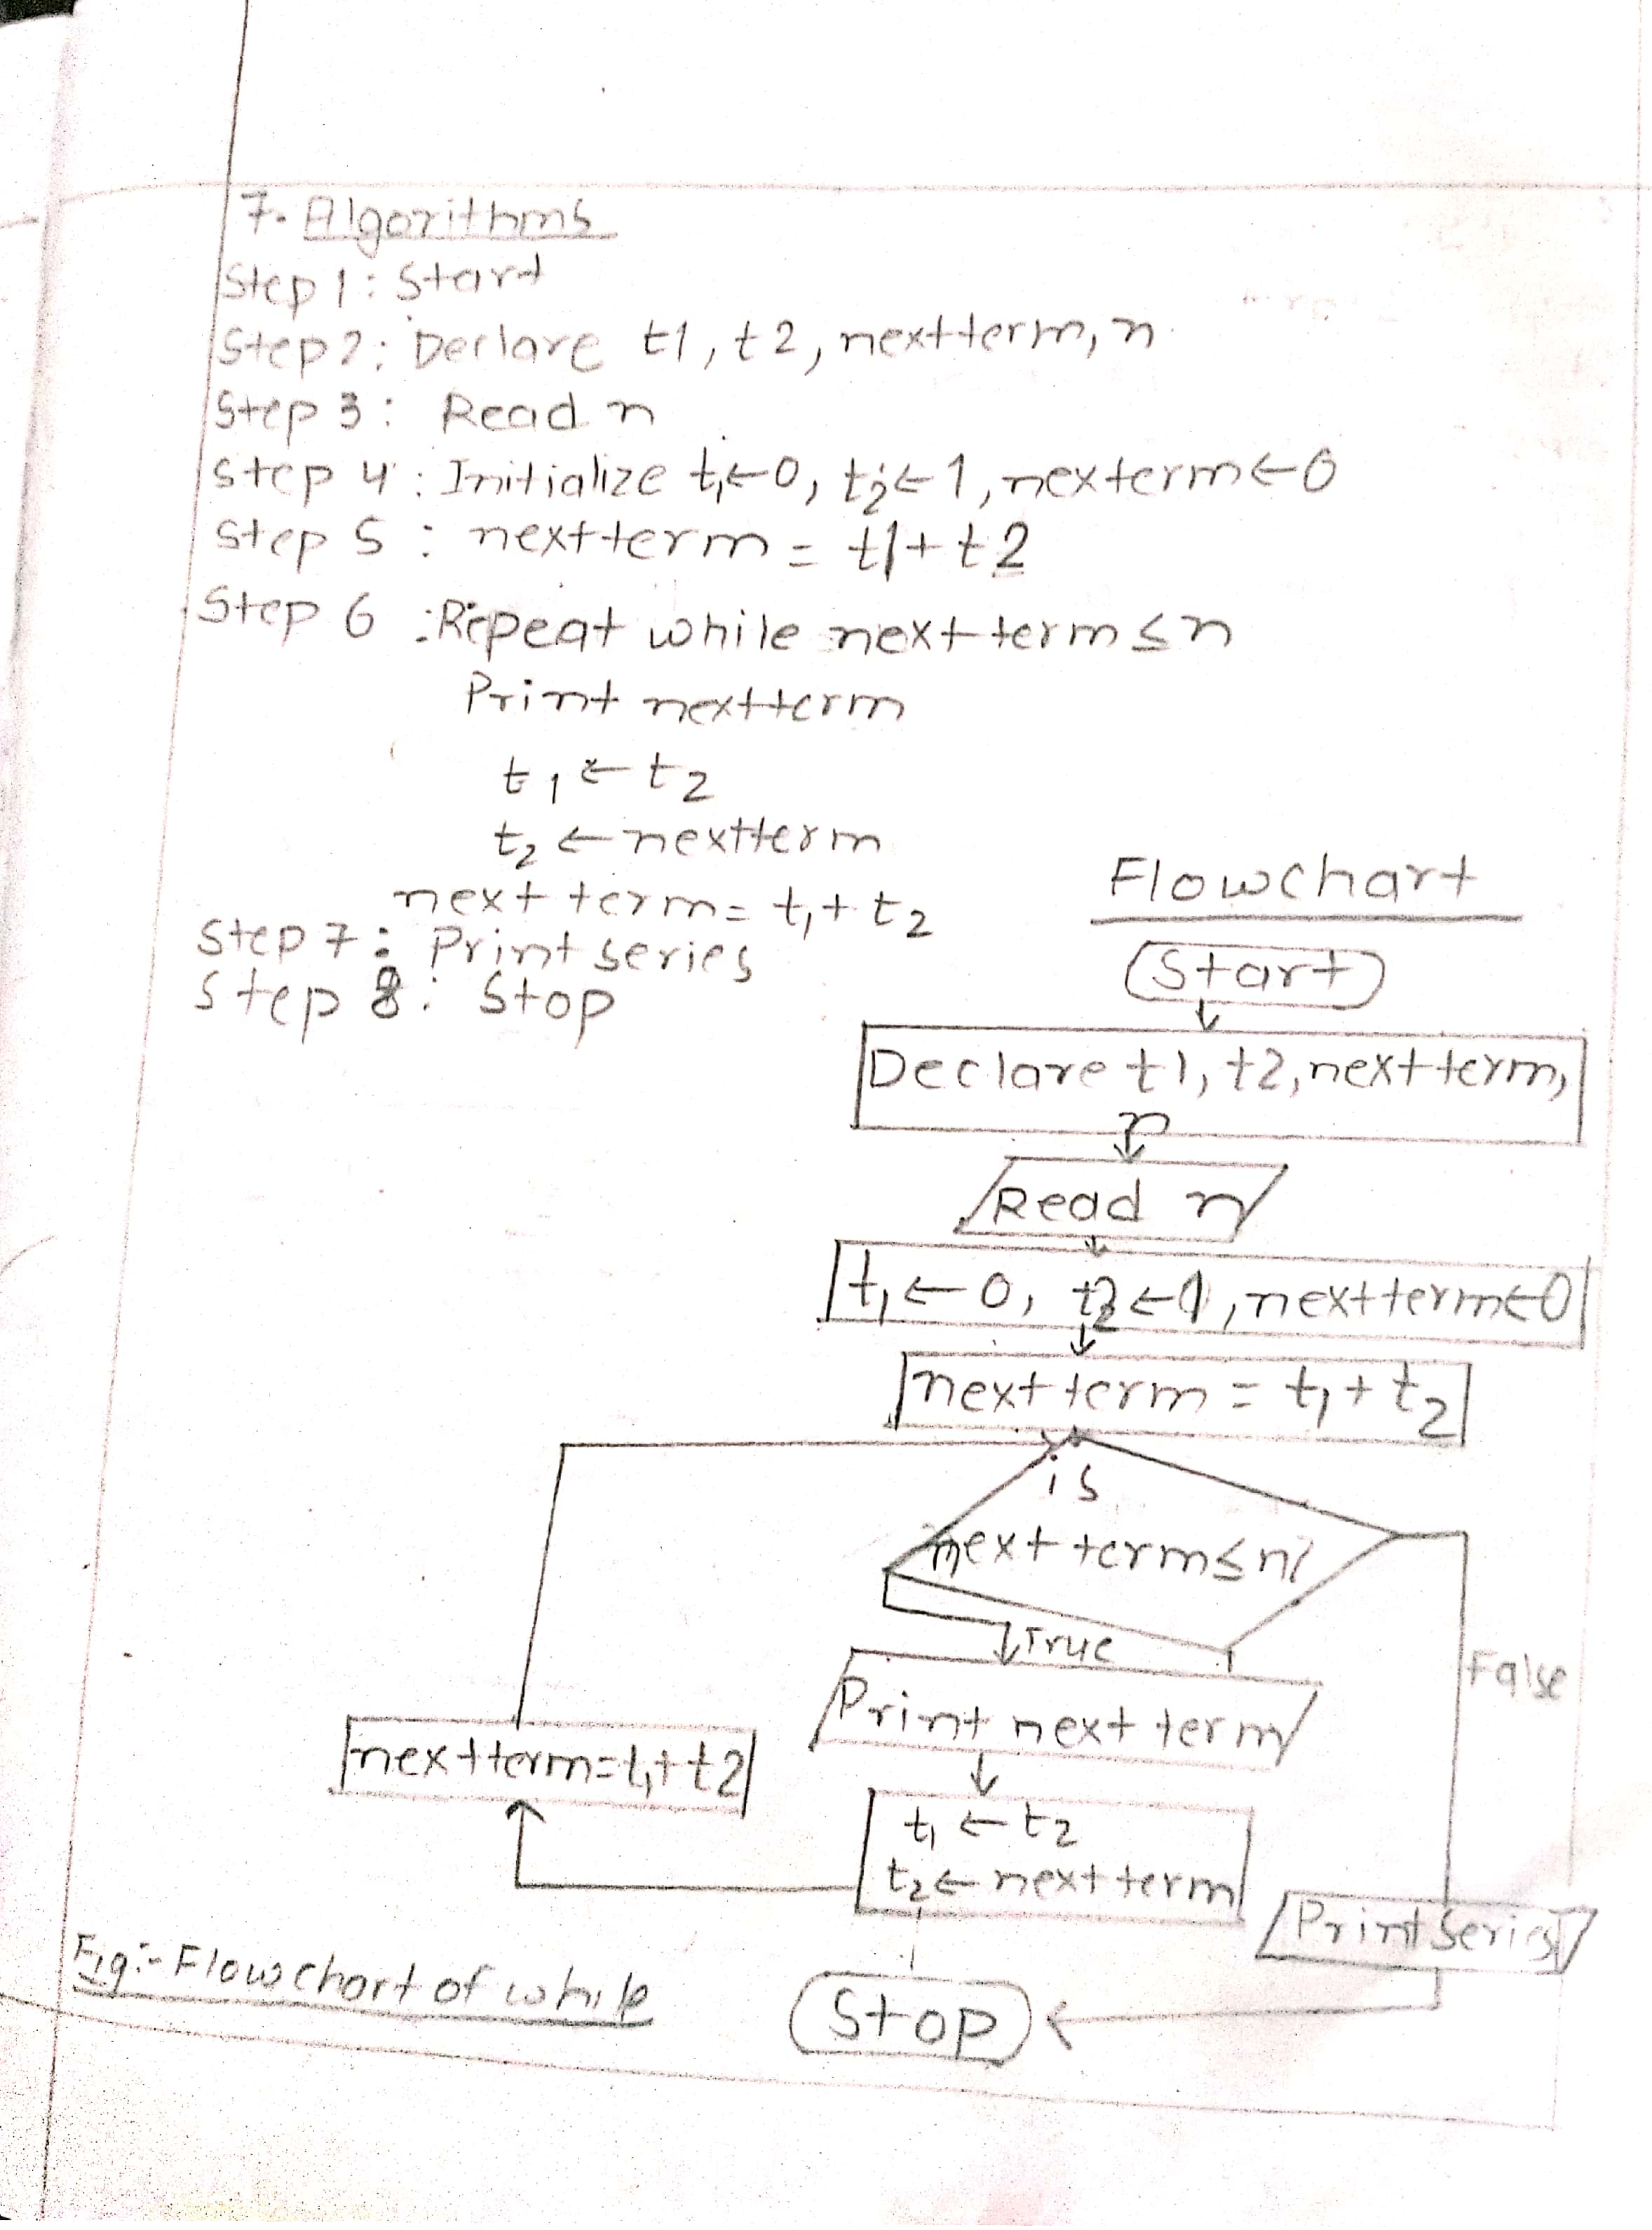 7. Algorithms
Step 1: Start
Step 2: Declare t1, t2, nextterm, n
Step 3: Read n
Step 4: Initialize t₁←0, t₂←1, nexterm←0
Step 5: nextterm = t1+t2
Step 6: Repeat while next term ≤ n
Print nextterm
t₁ ← t₂
t₂ ← nextterm
next term = t₁ + t₂
Step 7: Print series
Step 8: Stop
Flowchart
Start
Declare t1, t2, next term,
n
Read n
t₁ ← 0, t2 ← 1, next term ← 0
next term = t₁ + t₂
is
next term ≤ n?
True
False
Print next term
nextterm = t₁ + t2
t₁ ← t₂
t₂ ← next term
Print Series
Fig:- Flowchart of while
Stop